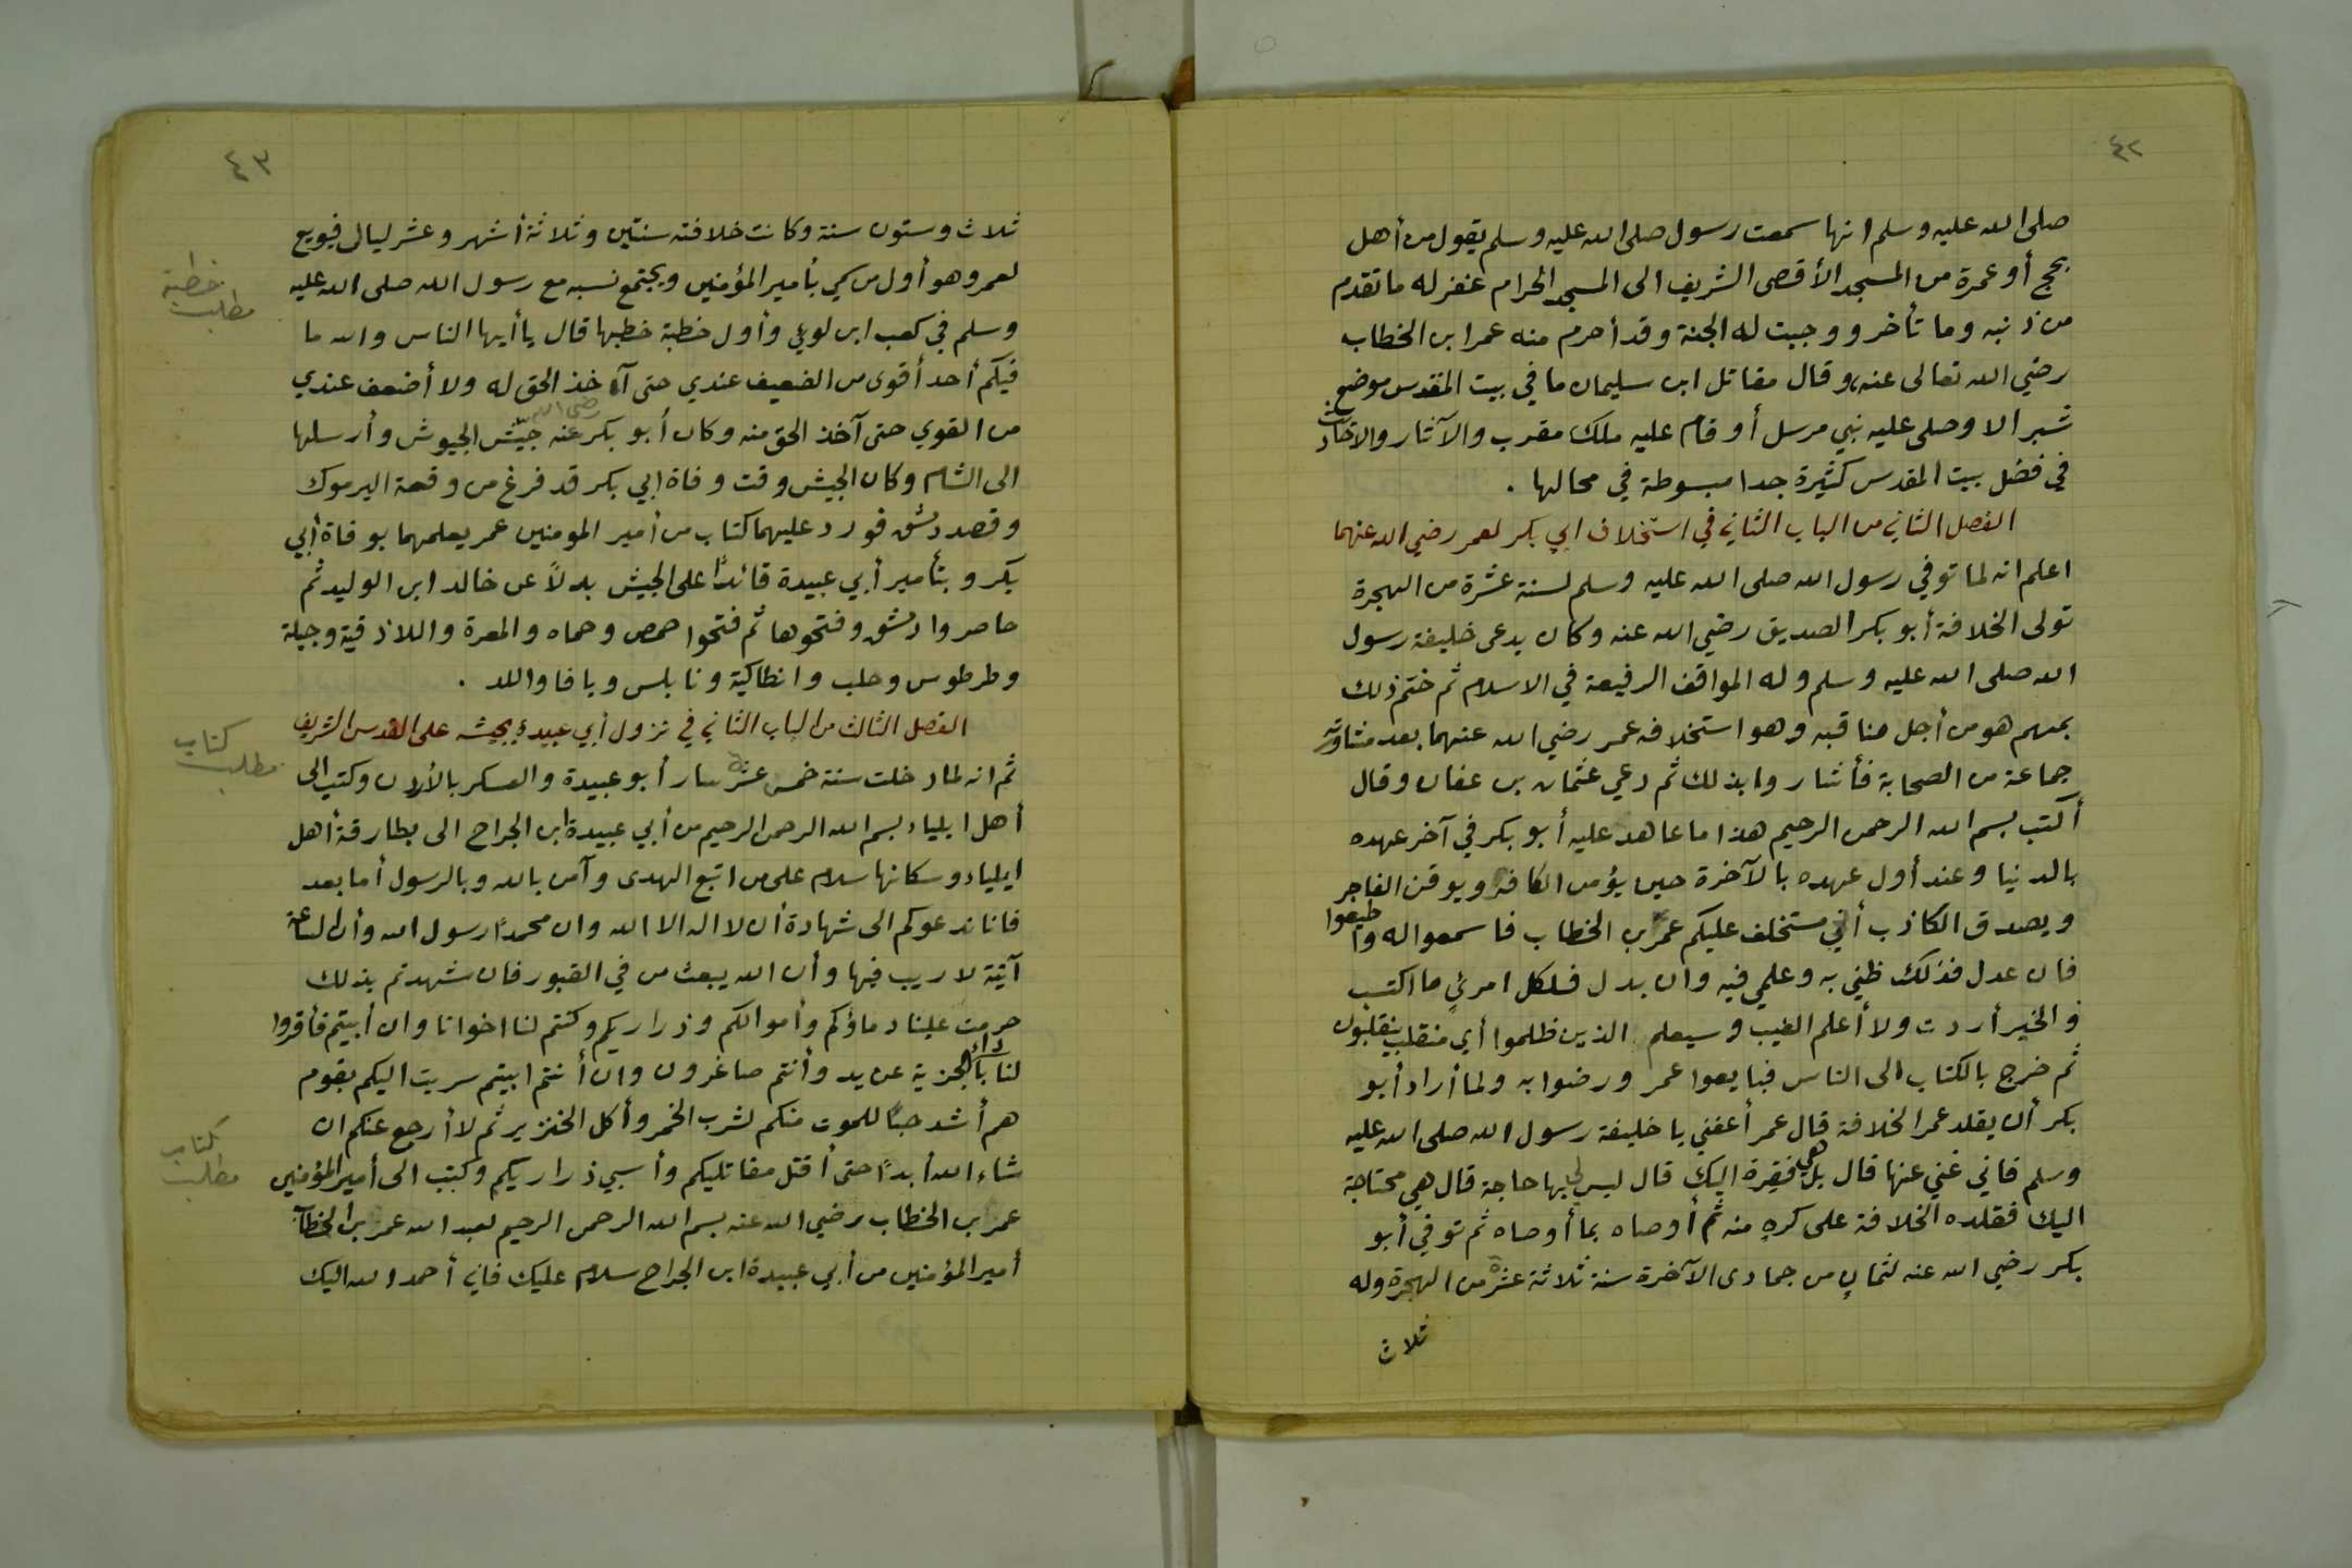 ٤٢
صلى الله عليه وسلم انها سمعت رسول صلى الله عليه وسلم يقول من أهل
بحج أو عمرة من المسجد الأقصى الشريف الى المسجد الحرام غفر له ما تقدم
من ذنبه وما تأخر ووجبت له الجنة وقد أحرم منه عمر ابن الخطاب
رضي الله تعالى عنه، وقال مقاتل ابن سليمان ما في بيت المقدس موضع
شبر الا وصلى عليه نبي مرسل أو قام عليه ملك مقرب والآثار والاحاديث
في فضل بيت المقدس كثيرة جدا مبسوطة في محالها .
الفصل الثاني من الباب الثاني في استخلاف ابي بكر لعمر رضي الله عنهما
اعلم انه لما توفي رسول الله صلى الله عليه وسلم لسنة عشرة من الهجرة
تولى الخلافة أبو بكر الصديق رضي الله عنه وكان يدعى خليفة رسول
الله صلى الله عليه وسلم وله المواقف الرفيعة في الاسلام ثم ختم ذلك
بمهم هو من أجل مناقبه وهو استخلافه عمر رضي الله عنهما بعد مشاورته
جماعة من الصحابة فأشاروا بذلك ثم دعي عثمان بن عفان وقال
أكتب بسم الله الرحمن الرحيم هذا ما عاهد عليه أبو بكر في آخر عهده
بالدنيا وعند أول عهده بالآخرة حين يؤمن الكافر ويوقن الفاجر
ويصدق الكاذب أني مستخلف عليكم عمر بن الخطاب فاسمعوا له واطيعوا
فان عدل فذلك ظني به وعلمي فيه وان بدل فلكل امرئٍ ما اكتسب
والخير أردت ولا أعلم الغيب وسيعلم الذين ظلموا أي منقلب ينقلبون
ثم خرج بالكتاب الى الناس فبايعوا عمر ورضوا به ولما أراد أبو
بكر أن يقلد عمر الخلافة قال عمر أعفني يا خليفة رسول الله صلى الله عليه
وسلم فاني غني عنها قال بل هي فقيرة اليك قال ليس لي بها حاجة قال هي محتاجة
اليك فقلده الخلافة على كره منه ثم أوصاه بما أوصاه ثم توفي أبو
بكر رضي الله عنه لثمان من جمادى الآخرة سنة ثلاثة عشرة من الهجرة وله
ثلاث
٤٣
ثلاث وستون سنة وكانت خلافته سنتين وثلاثة أشهر وعشر ليال فبويع
لعمر وهو أول من سمي بأمير المؤمنين ويجتمع نسبه مع رسول الله صلى الله عليه
خطبة
مطلب
وسلم في كعب ابن لوي وأول خطبة خطبها قال يا أيها الناس والله ما
فيكم أحد أقوى من الضعيف عندي حتى آخذ الحق له ولا أضعف عندي
من القوي حتى آخذ الحق منه وكان أبو بكر رضي الله عنه جيّش الجيوش وأرسلها
الى الشام وكان الجيش وقت وفاة ابي بكر قد فرغ من وقعة اليرموك
وقصد دمشق فورد عليهما كتاب من أمير المومنين عمر يعلمهما بوفاة أبي
بكر وبتأمير أبي عبيدة قائدًا على الجيش بدلاً عن خالد ابن الوليد ثم
حاصروا دمشق وفتحوها ثم فتحوا حمص وحماه والمعرة واللاذقية وجبلة
وطرطوس وحلب وانطاكية ونابلس ويافا واللد .
الفصل الثالث من الباب الثاني في نزول أبي عبيدة بجيشه على القدس الشريف
كتاب
مطلب
ثم انه لما دخلت سنة خمس عشرة سار أبو عبيدة والعسكر بالأردن وكتب الى
أهل ايلياء بسم الله الرحمن الرحيم من أبي عبيدة ابن الجراح الى بطارقة أهل
ايلياء وسكانها سلام على من اتبع الهدى وآمن بالله وبالرسول أما بعد
فانا ندعوكم الى شهادة أن لا اله الا الله وان محمدًا رسول الله وأن الساعة
آتية لا ريب فيها وأن الله يبعث من في القبور فان شهدتم بذلك
حرمت علينا دماؤكم وأموالكم وذراريكم وكنتم لنا اخوانا وان أبيتم فأقروا
لنا بأداء الجزية عن يد وأنتم صاغرون وان أنتم ابيتم سريت اليكم بقوم
هم أشد حبًا للموت منكم لشرب الخمر وأكل الخنزير ثم لا أرجع عنكم ان
كتاب
مطلب
شاء الله أبدًا حتى أقتل مقاتليكم وأسبي ذراريكم وكتب الى أمير المؤمنين
عمر بن الخطاب رضي الله عنه بسم الله الرحمن الرحيم لعبد الله عمر بن الخطاب
أمير المؤمنين من أبي عبيدة ابن الجراح سلام عليك فاني أحمد الله اليك